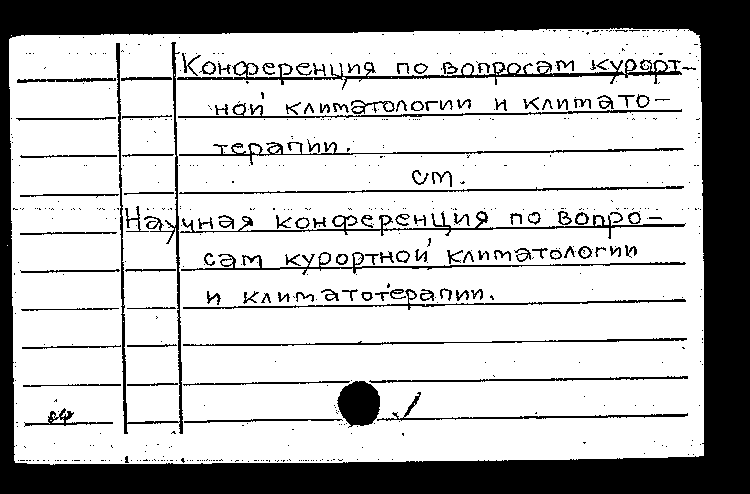 Конференция по вопросам курорт-
ной климатологии и климато-
терапии.
см.
Научная конференция по вопро-
сам курортной климатологии
и климатотерапии.